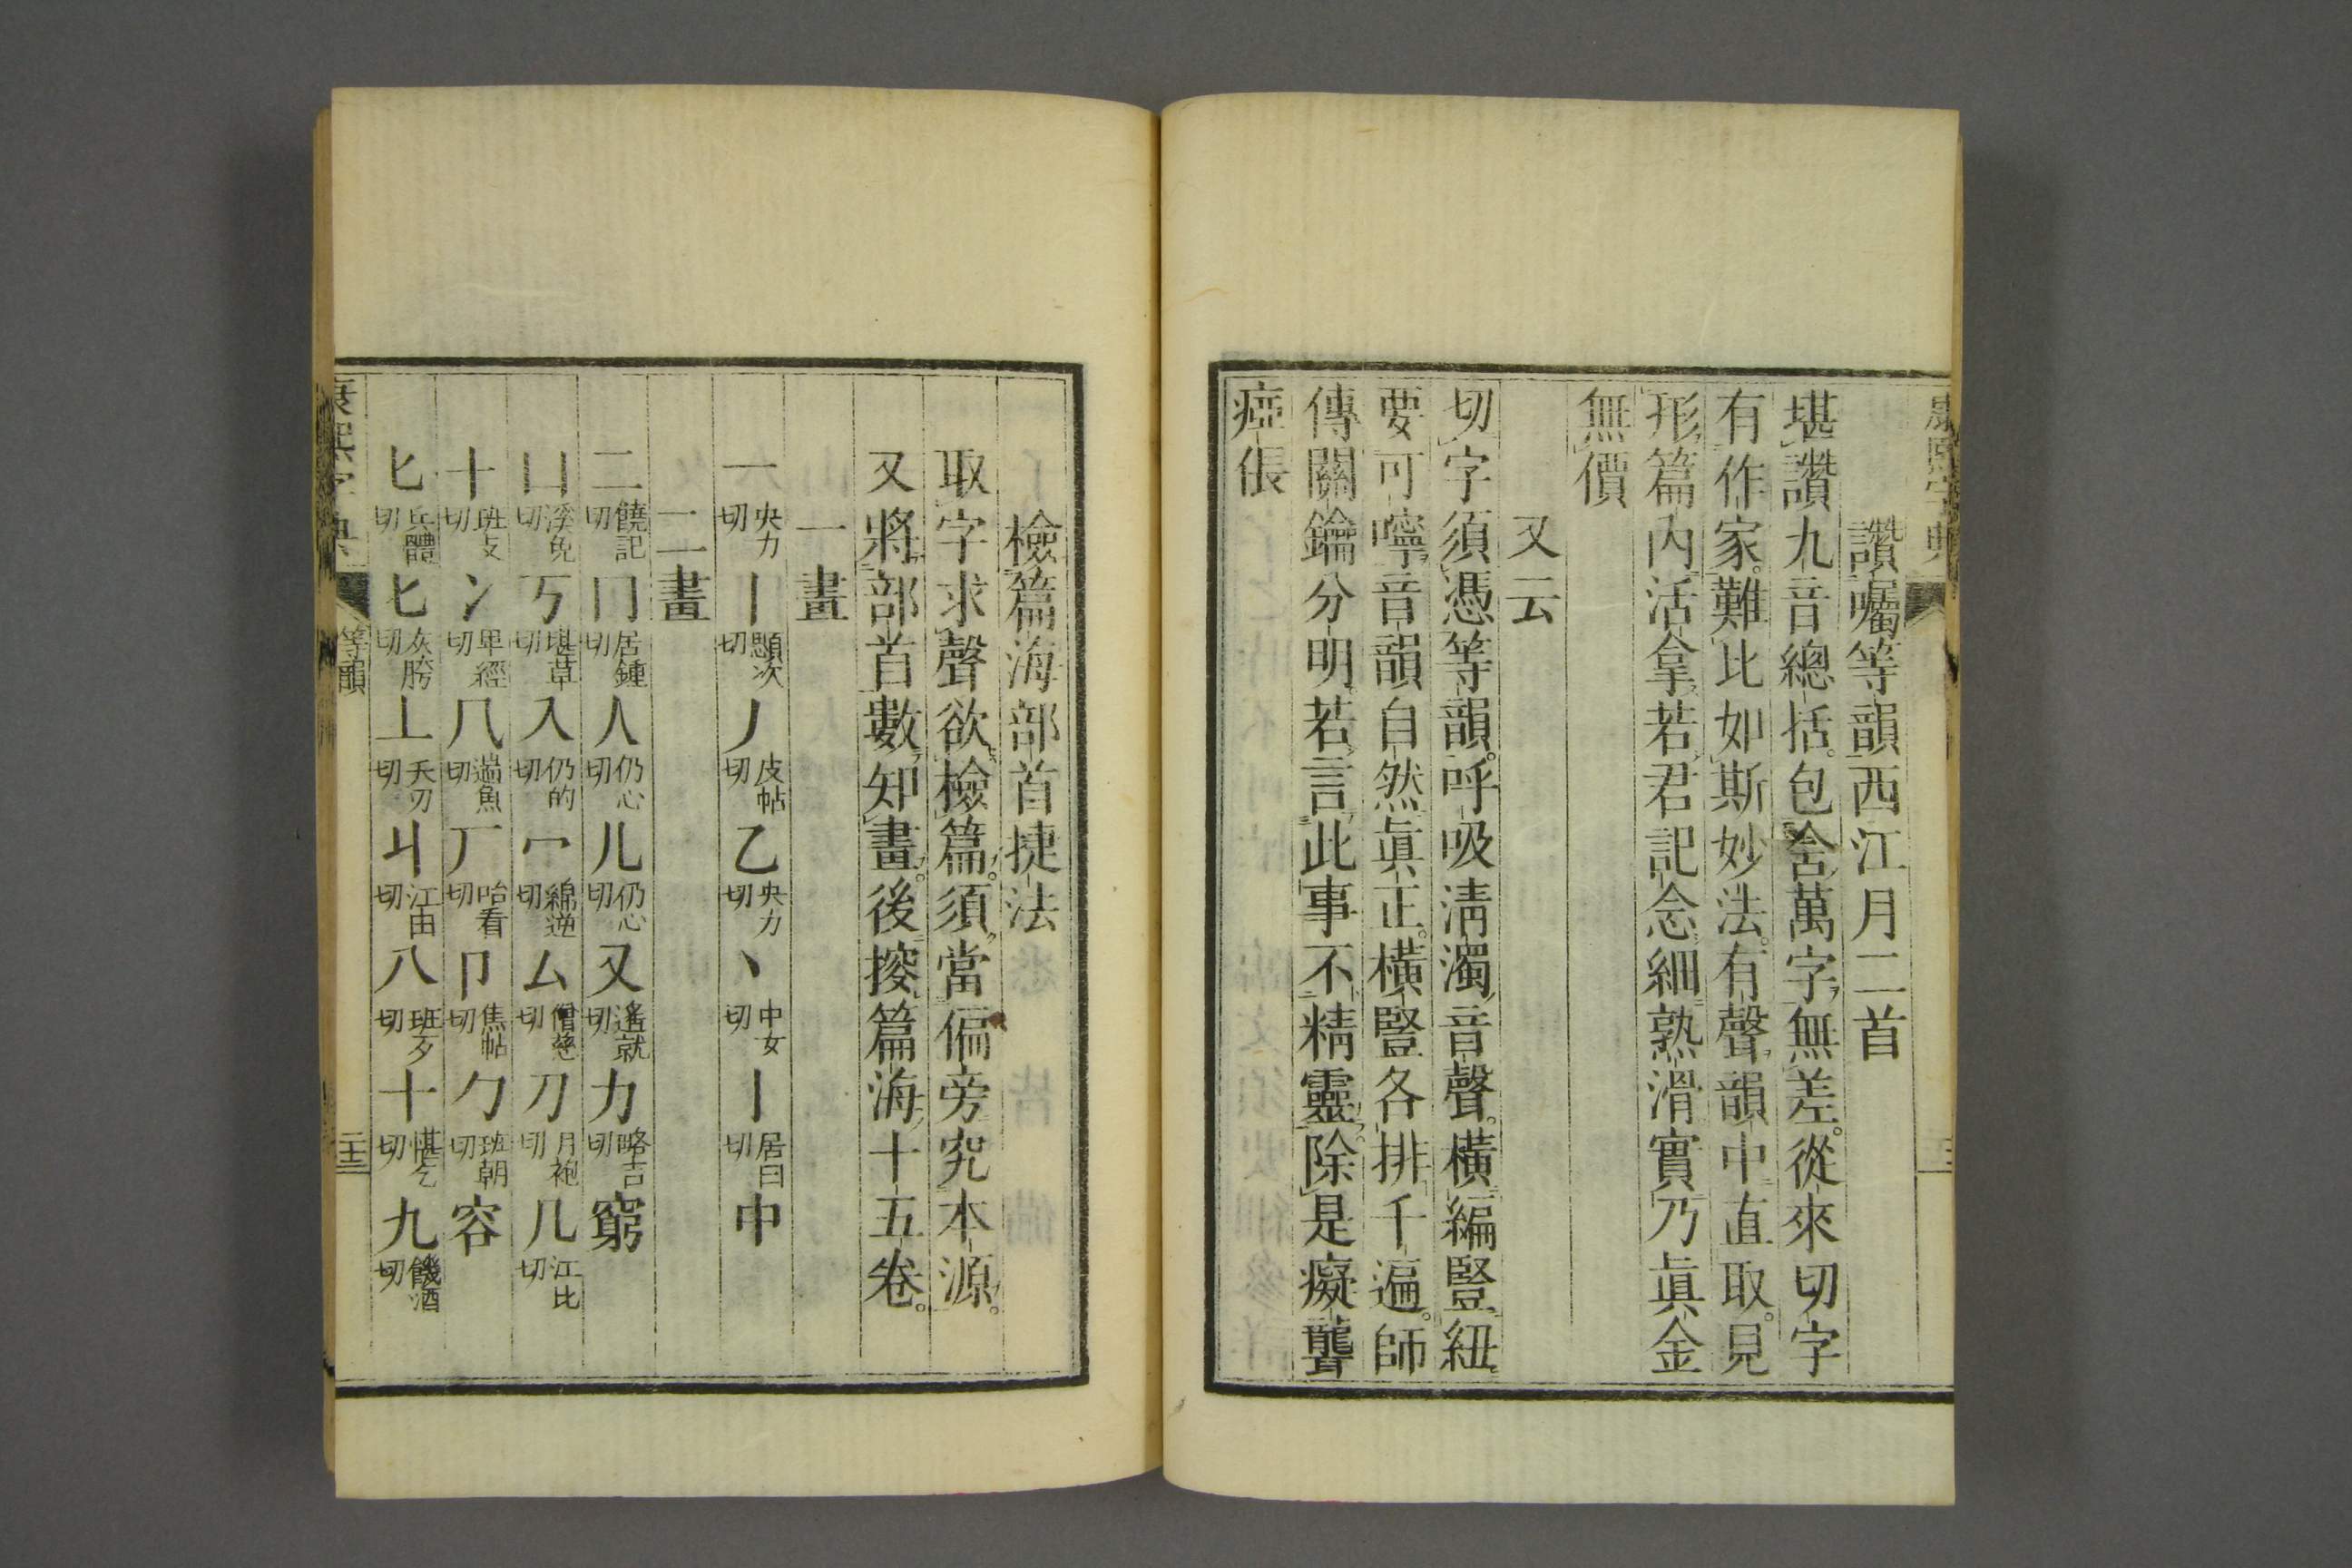 讚囑等韻西江月二首
堪讚九音總括。包含萬字無差。從來切字
有作家。難比如斯妙法。有聲韻中直取。見
形篇內活拿。若君記念細熟滑。實乃眞金
無價
又云
切字須憑等韻。呼吸清濁音聲。橫編豎紐
要可嚀。音韻自然眞正。橫豎各排千遍。師
傳關鑰分明。若言此事不精靈。除是癡聾
瘂倀
檢篇海部首捷法
取字求聲欲檢篇。須當偏旁究本源。
又將部首數知畫。後𢱢篇海十五卷。
一畫
一央力切丨顯次切丿皮帖切乙央力切丶中女切丨居曰切中
二畫
二饒記切冂居鍾切人仍心切儿仍心切又遙就切力略吉切窮
凵溪免切丂堪草切入仍的切冖綿逆切厶僧慈切刀月袍切几江比切
十班支切冫畢經切八邁魚切厂哈看切卩焦帖切勹班朝切容
匕兵體切匕灰胯切丄天刃切丩江由切八班歹切十堪乞切九饑酒切
康熙字典
等韻